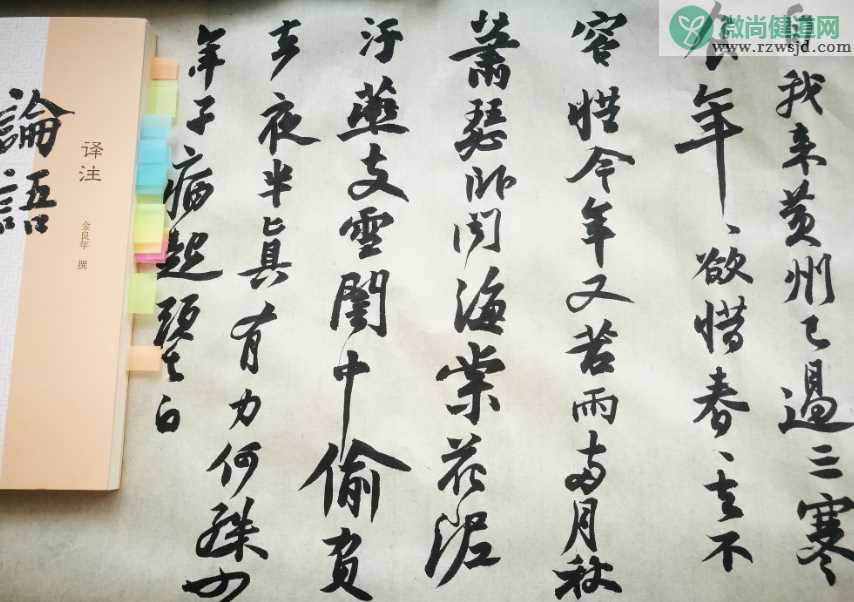 自我来黄州已過三寒
食年、欲惜春、去不
容惜今年又苦雨兩月秋
蕭瑟卧聞海棠花泥
汙燕支雪闇中偷負
去夜半真有力何殊少
年子病起頭已白
論語
译注
金良年 撰
微尚健道网
www.rzwsjd.com